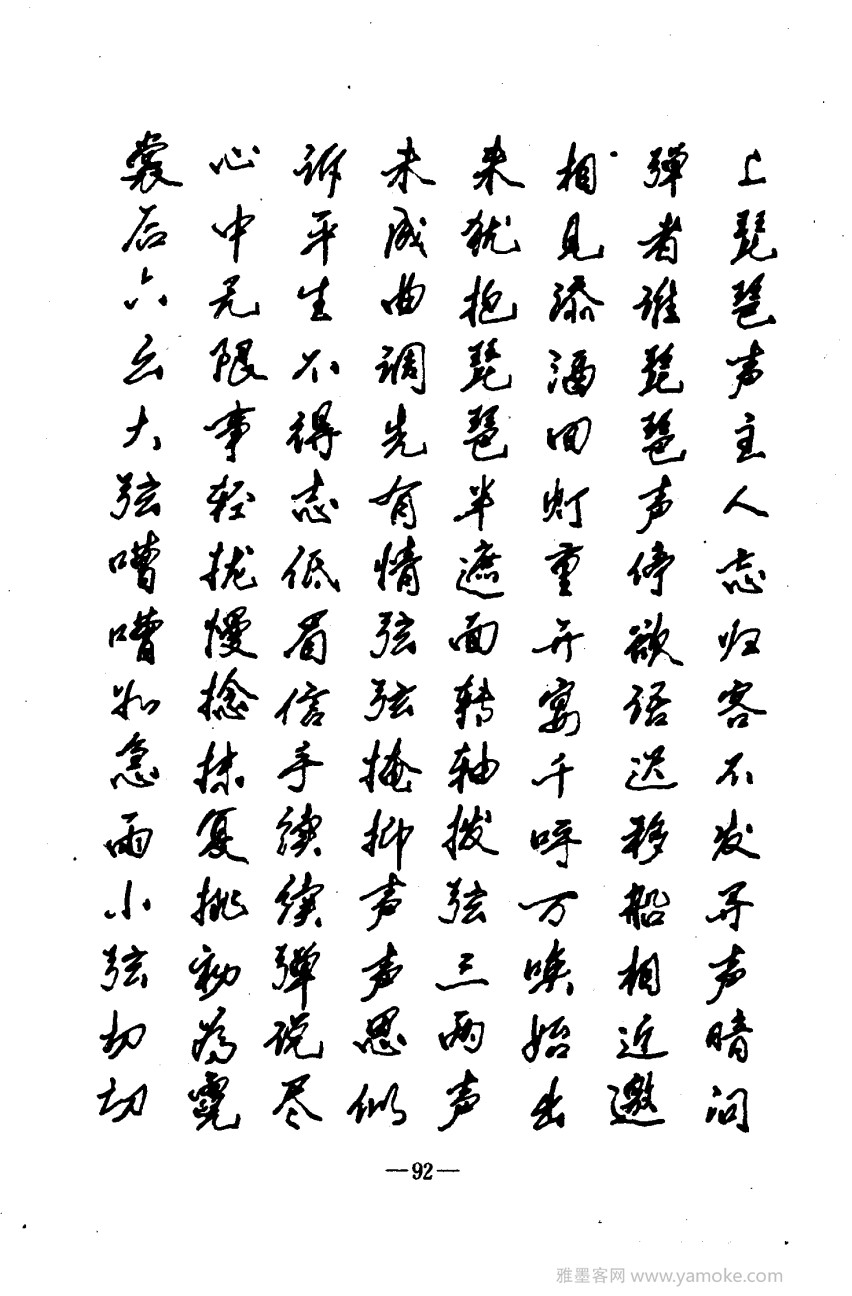 上琵琶声主人忘归客不发寻声暗问
弹者谁琵琶声停欲语迟移船相近邀
相见添酒回灯重开宴千呼万唤始出
来犹抱琵琶半遮面转轴拨弦三两声
未成曲调先有情弦弦掩抑声声思似
诉平生不得志低眉信手续续弹说尽
心中无限事轻拢慢捻抹复挑初为霓
裳后六幺大弦嘈嘈如急雨小弦切切
—92—
雅墨客网 www.yamoke.com